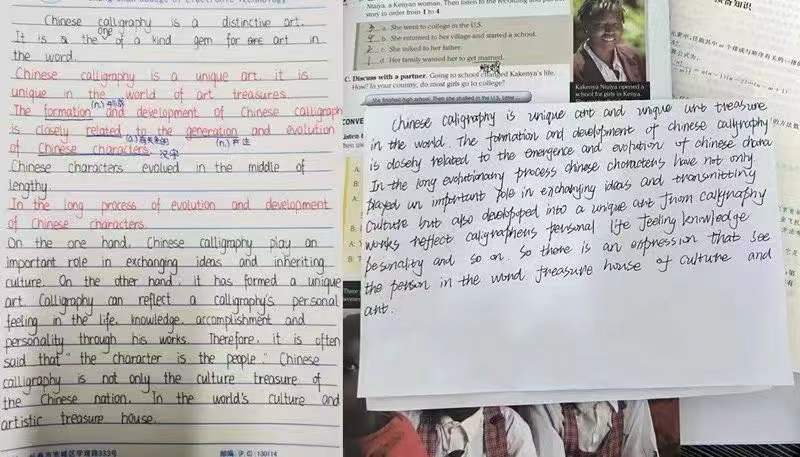 Chinese calligraphy is a distinctive art.
It is a the one of a kind gem for art in
the word.
Chinese calligraphy is a unique art. it is
unique in the world of art treasures
(n.)
The formation and development of Chinese calligraph
is closely related to the generation and evolution
of Chinese characters.
汉字
(n.) 产生
Chinese characters evolued in the middle of
lengthy.
In the long process of evolution and development
of Chinese characters.
On the one hand, Chinese calligraphy play an
important role in exchanging ideas and inheriting
culture. On the other hand, it has formed a unique
art. Calligraphy can reflect a calligraphy's personal
feeling in the life, knowledge, accomplishment and
personality through his works. Therefore, it is often
said that "the character is the people." Chinese
calligraphy is not only the culture treasure of
the Chinese nation. In the world's culture and
artistic treasure house.
邮编 P.C: 130114
Ntaiya, a Kenyan woman. Then listen to the
story in order from 1 to 4.
a. She went to college in the U.S.
b. She returned to her village and started a school.
c. She talked to her father.
d. Her family wanted her to get married.
C. Discuss with a partner. Going to school changed Kakenya's life.
How? In your country, do most girls go to college?
She finished high school. Then she studied in the U.S. Later
Kakenya Ntaiya opened a
school for girls in Kenya.
CONVE
Chinese caligraphy is unique art and unique art treasure
in the world. The formation and development of chinese calligraphy
is closely related to the emergence and evolution of chinese chara
In the long evolutionary process chinese characters have not only
played an important role in exchanging ideas and transmitting
culture but also developed into a unique art From calligraphy
works reflect caligraphers personal life feeling knowledge
pesonality and so on. So there is an expression that see
the person in the word treasure house of culture and
art.